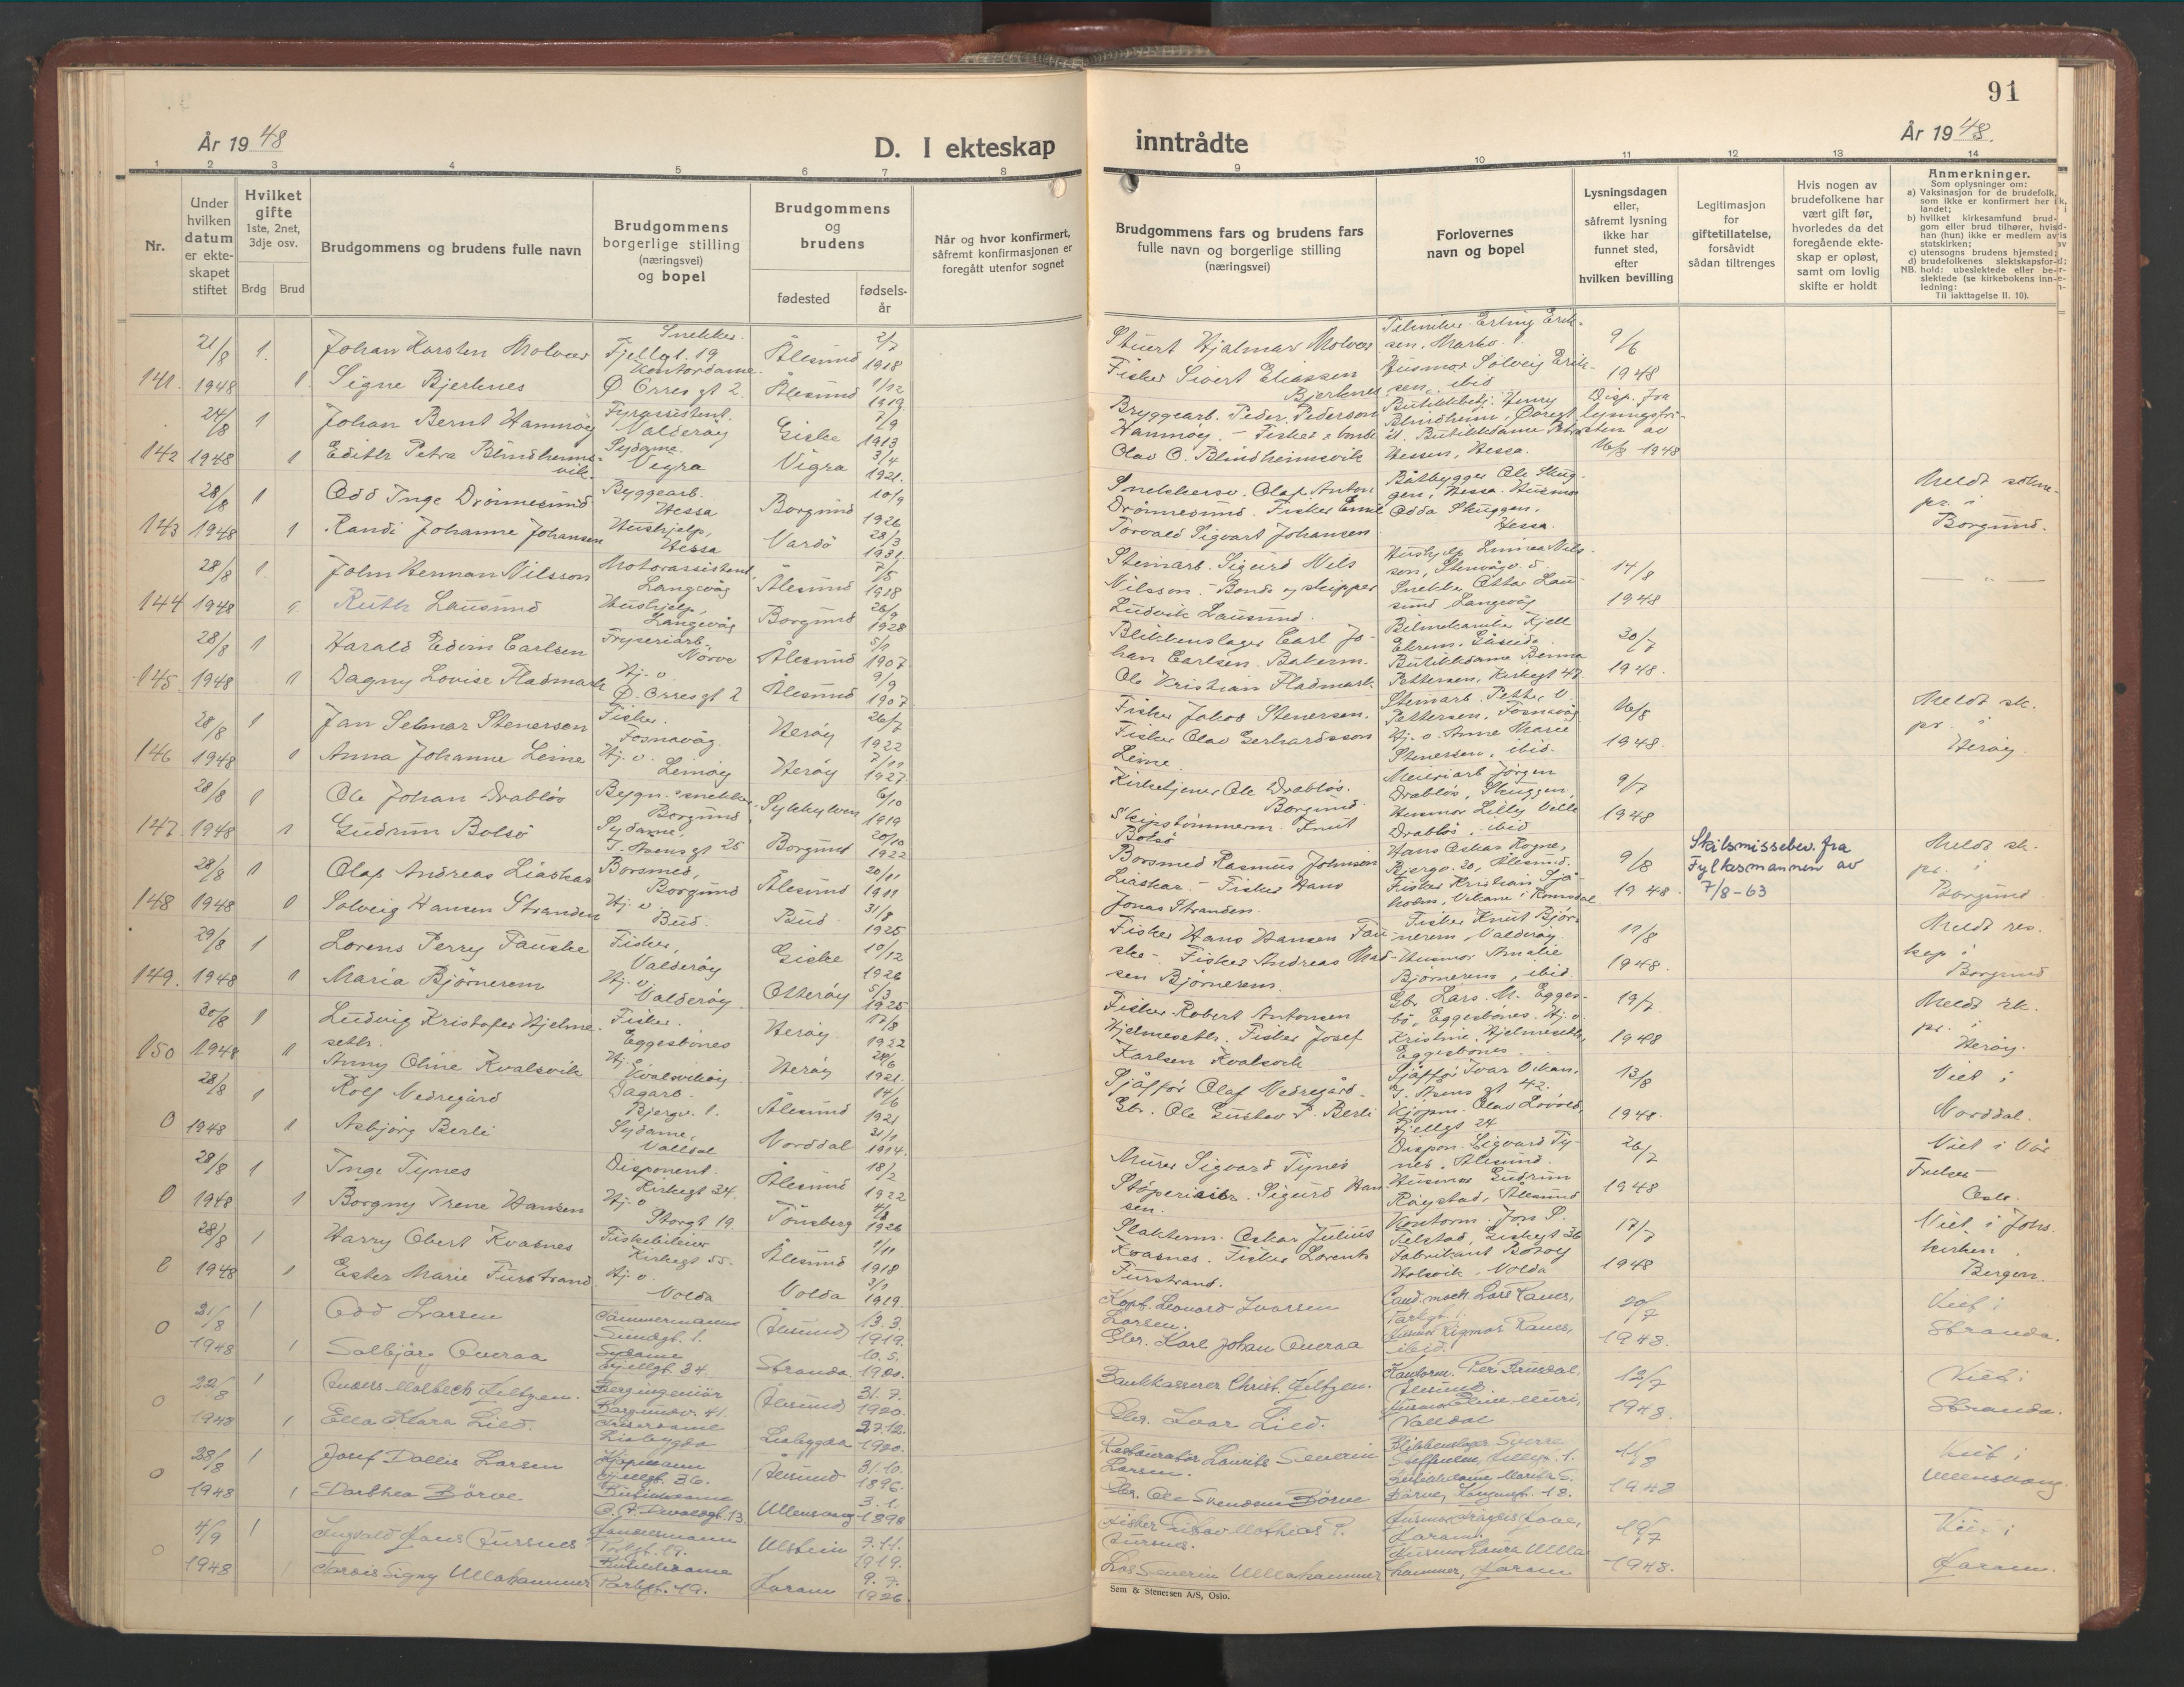 91
År 1948
D. I ekteskap inntrådte
År 1948.
1 2 3 4 5 6 7 8 9 10 11 12 13 14
Nr.
Under hvilken datum er ekteskapet stiftet
Hvilket gifte
1ste, 2net, 3dje osv.
Brdg Brud
Brudgommens og brudens fulle navn
Brudgommens borgerlige stilling (næringsvei) og bopel
Brudgommens og brudens
fødested
fødselsår
Når og hvor konfirmert, såfremt konfirmasjonen er foregått utenfor sognet
Brudgommens fars og brudens fars fulle navn og borgerlige stilling (næringsvei)
Forlovernes navn og bopel
Lysningsdagen eller, såfremt lysning ikke har funnet sted, efter hvilken bevilling
Legitimasjon for giftetillatelse, forsåvidt sådan tiltrenges
Hvis nogen av brudefolkene har vært gift før, hvorledes da det foregående ekteskap er opløst, samt om lovlig skifte er holdt
Anmerkninger.
Som oplysninger om:
a) Vaksinasjon for de brudefolk, som ikke er konfirmert her i landet;
b) hvilket kirkesamfund brudgom eller brud tilhører, hvis han (hun) ikke er medlem av statskirken;
c) utensogns brudens hjemsted;
d) brudefolkenes slektskapsforhold: ubeslektede eller beslektede (se kirkebokens innledning:
NB.
Til iakttagelse II. 10).
141. 21/8 1948 1 Johan Karsten Molvær Snekker. Fjellgt. 19 Ålesund 2/7 1918
1 Signe Bjerknes Kontordame. Ø. Orresgt 2 Ålesund 1/12 1919
Stuert Hjalmar Molvær
Fisker Sivert Eliassen Bjerknes
Husmor Solveig Eriksen, ibid
9/6 1948
142 24/8 1948 1 Johan Bernt Hamnøy Fyrassistent. Valderøy Giske 7/9 1913
1 Edith Petra Blindheimsvik Sydame. Vigra Vigra 3/4 1921.
Bryggearb. Peder Pederson Hamnøy. - Fisker
Olav O. Blindheimsvik
Hessen, Hessa.
Disp. fra lysningsfristen av 16/8 1948
143 28/8 1948 1 Odd Inge Drønnesund Byggearb. Hessa Borgund 10/9 1926
1 Randi Johanne Johansen Hushjelp, Hessa Vardø 28/3 1931.
Snekkersv. Olaf Anton Drønnesund. Fisker
Torvald Sigvart Johansen
Båtbygger Ole Skuggen, Hessa. Husmor Odda Skuggen, Hessa.
Meldt soknepr. i Borgund.
144 28/8 1948 1 John Herman Nilsson Motorassistent, Langevåg Ålesund 7/5 1918
1 Ruth Lausund Hushjelp, Langevåg Borgund 28/9 1928
Steinarb. Sigurd Nils Nilsson. - Bonde og skipper Ludvik Lausund.
Hushjelp Linnea Nilsson,
Snekker Ottar Lausund Langevåg
14/8 1948
— „ —
145. 28/8 1948 1 Harald Edvin Carlsen Fryseriarb. Nørve Ålesund 5/11 1907
1 Dagny Lovise Fladmark Hj. v. Ø. Orresgt 2 Ålesund 9/9 1907
Blikkenslager Carl Johan Carlsen. Bakerm. Ole Kristian Fladmark
Bilmekaniker Kjell Ekrem, Gåseide.
Butikkdame Benna Pettersen, Kirkegt 47
30/7 1948.
146 28/8 1948 1 Jan Selmar Stenersen Fisker. Fosnavåg. Herøy 26/7 1922
1 Anna Johanne Leine Hj. v. Leinøy Herøy 7/11 1927
Fisker Jakob Stenersen.
Fisker Olav Gerhardsson Leine.
Steinarb. Petter O. Pettersen, Fosnavåg
Hj. v. Anne Marie Stenersen, ibid.
16/8 1948
Meldt sk. pr. i Herøy
147. 28/8 1948 1 Ole Johan Drabløs Borgund. Sykkylven 6/10 1919
1 Gudrun Bolsø Sydame. Borgund 20/10 1922
Kirketjener Ole Drabløs. Borgund.
Skipstømmerm. Knut Bolsø
Meieriarb Jørgen Drabløs, Skuggen,
Husmor Lilly Drabløs, ibid
9/7 1948
148 28/8 1948 1 Olaf Andreas Liaskar Børsmed, Borgund Ålesund 20/11 1911
1 Solveig Hansen Stranden Hj. v. Bud. Bud 31/8 1925
Børsmed Rasmus Johnsen Liaskar. - Fisker Hans Jonas Stranden.
Hans Oskar Rogne, Bjergv. 30, Ålesund.
9/8 1948.
Skilsmissebev. fra Fylkesmannen av 7/8-63
Meldt sk. pr. i Borgund
149. 29/8 1948 1 Lorens Perry Fauske Fisker, Valderøy Giske 10/12 1926
1 Maria Bjørnerem Hj. v. Valderøy. Otterøy 5/3 1925
Fisker Hans Hansen Fauske - Fisker Andreas Madsen Bjørnerem.
Fisker Knut Bjørnerem, Valderøy. Husmor Amalie Bjørnerem, ibid.
11/8 1948.
Meldt res. kap i Borgund
150 30/8 1948 1 Ludvig Kristofer Hjelmeseth. Fisker. Eggesbønes Herøy 17/8 1922
1 Anny Oline Kvalsvik Hj. v. Kvalsvikøy Herøy 1921.
Fisker Robert Antonsen Hjelmeseth. Fisker Josef Karlsen Kvalsvik
Gbr. Lars M. Eggesbø, Eggesbønes. Hj. v. Kristine Hjelmeseth, Eggesbønes.
19/7 1948
Meldt sk. pr. i Herøy.
0 28/8 1948 1 Rolf Nedregård Dagarb. Bjergv. 1. Ålesund 14/6 1921
1 Asbjørg Berli Sydame, Valldal Norddal 31/1 1914.
Sjåffør Olaf Nedregård.
Gbr. Ole Gustav P. Berli
Kjøpm. Olav Løvold, Fjellgt 24.
13/8 1948.
Viet i Norddal.
0 28/8 1948 1 Inge Tynes Disponent. Kirkegt 34. Ålesund 18/2 1922
1 Borgny Irene Hansen Hj. v. Storgt 19. Tønsberg 1926
Murer Sigvard Tynes
Sigurd Hansen.
Dispon. Sigvard Tynes, Ålesund.
Husmor Gudrun Røystad, Ålesund
26/7 1948
Viet i Vår Frelser Oslo.
0 28/8 1948 1 Harry Obert Kvasnes Kirkegt 55. Ålesund 1/11 1918
1 Ester Marie Furstrand Hj. v. Volda Volda 1919.
Slakterm. Oskar Julius Kvasnes. Fisker Lorents Furstrand.
Holsvik. Volda
17/7 1948
Viet i Johs. kirken. Bergen.
0 31/8 1948 1 Odd Larsen Tømmermann Sundgt. 1. Ålesund 13.3. 1919.
1 Solbjørg Overaa Sydame Fjellgt. 34. Stranda. 10.5. 1920.
Kapt. Leonard Ivarsen Larsen.
Gbr. Karl Johan Overaa
20/7 1948.
Viet i Stranda.
0 22/8 1948 1 Anders Malbech Jeltzen. Bergingeniør Borgundv. 41. Ålesund 31.7. 1920.
1 Ella Klara Lied. Liabygda Liabygda 27.12. 1920.
Bankkasserer Christ. Jeltzen.
Gbr. Ivar Lied.
Kontorm. Per Brusdal, Ålesund
Valldal
12/7 1948.
Viet i Stranda.
0 28/8 1948 1 Josef Dallis Larsen Kjøpmann Fjellgt. 36. Ålesund 31.10. 1896.
1 Dorthea Børve Butikkdame Ullensvang 3.1. 1898
Restauratør Laurits Severin Larsen.
Gbr. Ole Svendsen Børve
11/8 1948
Viet i Ullensvang.
0 4/9 1948 1 Ingvald Hans Aursnes Parkgt. 19. Ulstein 7.11. 1919.
1 Tordis Signy Ullahammer Butikkdame Parkgt. 19. Haram 9.7. 1926
Los Severin Ullahammer
Husmor Laura Ullahammer, Haram
19/7 1948.
Viet i Haram.
Sem & Stenersen A/S, Oslo.